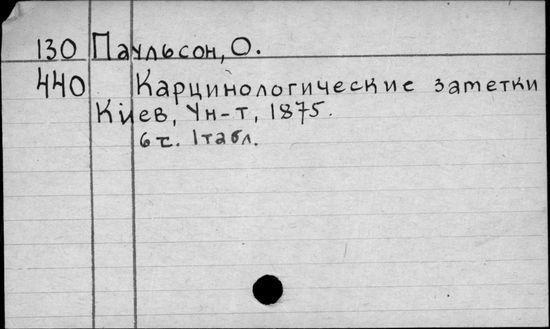 130 Паульсон, О.
440 Карцинологические заметки
Киев, Ун-т, 1875.
6 с. 1 табл.